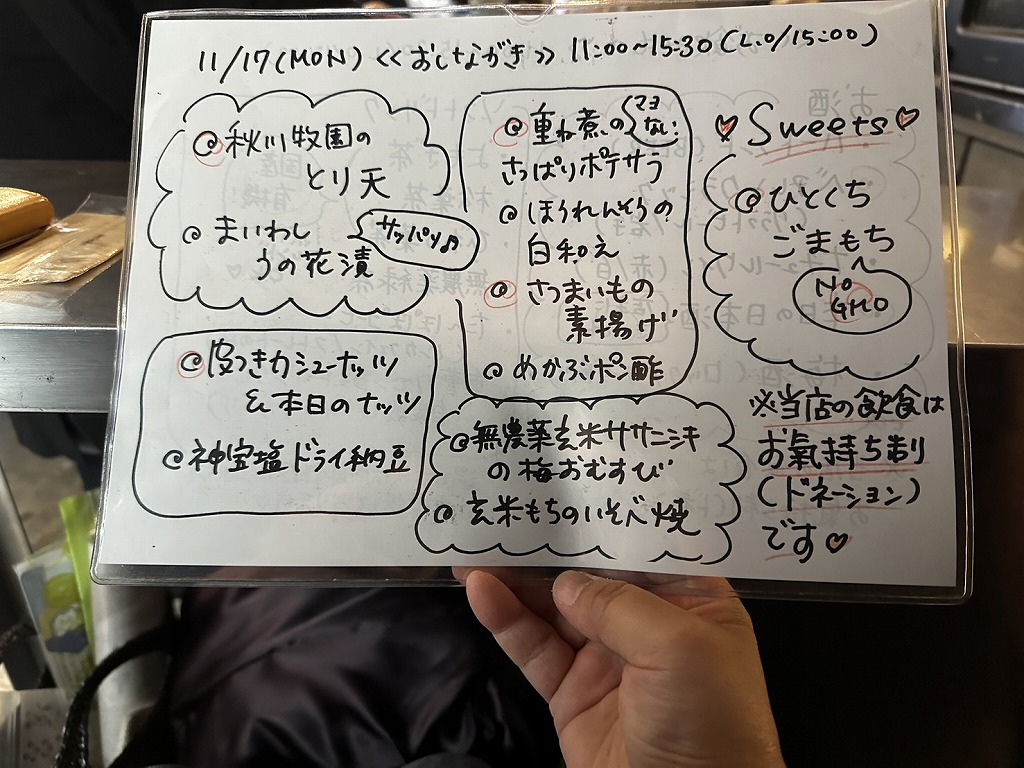 11/17(MON) 《おしながき》 11:00~15:30(L.O/15:00)
@秋川牧園の
とり天
@まいわし
うの花漬
サッパリ♫
@皮つきカシューナッツ
&本日のナッツ
@神宝塩ドライ納豆
@重ね煮の
マヨ
なし!
さっぱりポテサラ
@ほうれんそうの
白和え
@さつまいもの
素揚げ
@めかぶポン酢
@無農薬玄米ササニシキ
の梅おむすび
@玄米もちのいそべ焼
♡Sweets♡
@ひとくち
ごまもち
NO
GMO
※当店の飲食は
お氣持ち制
(ドネーション)
です♡